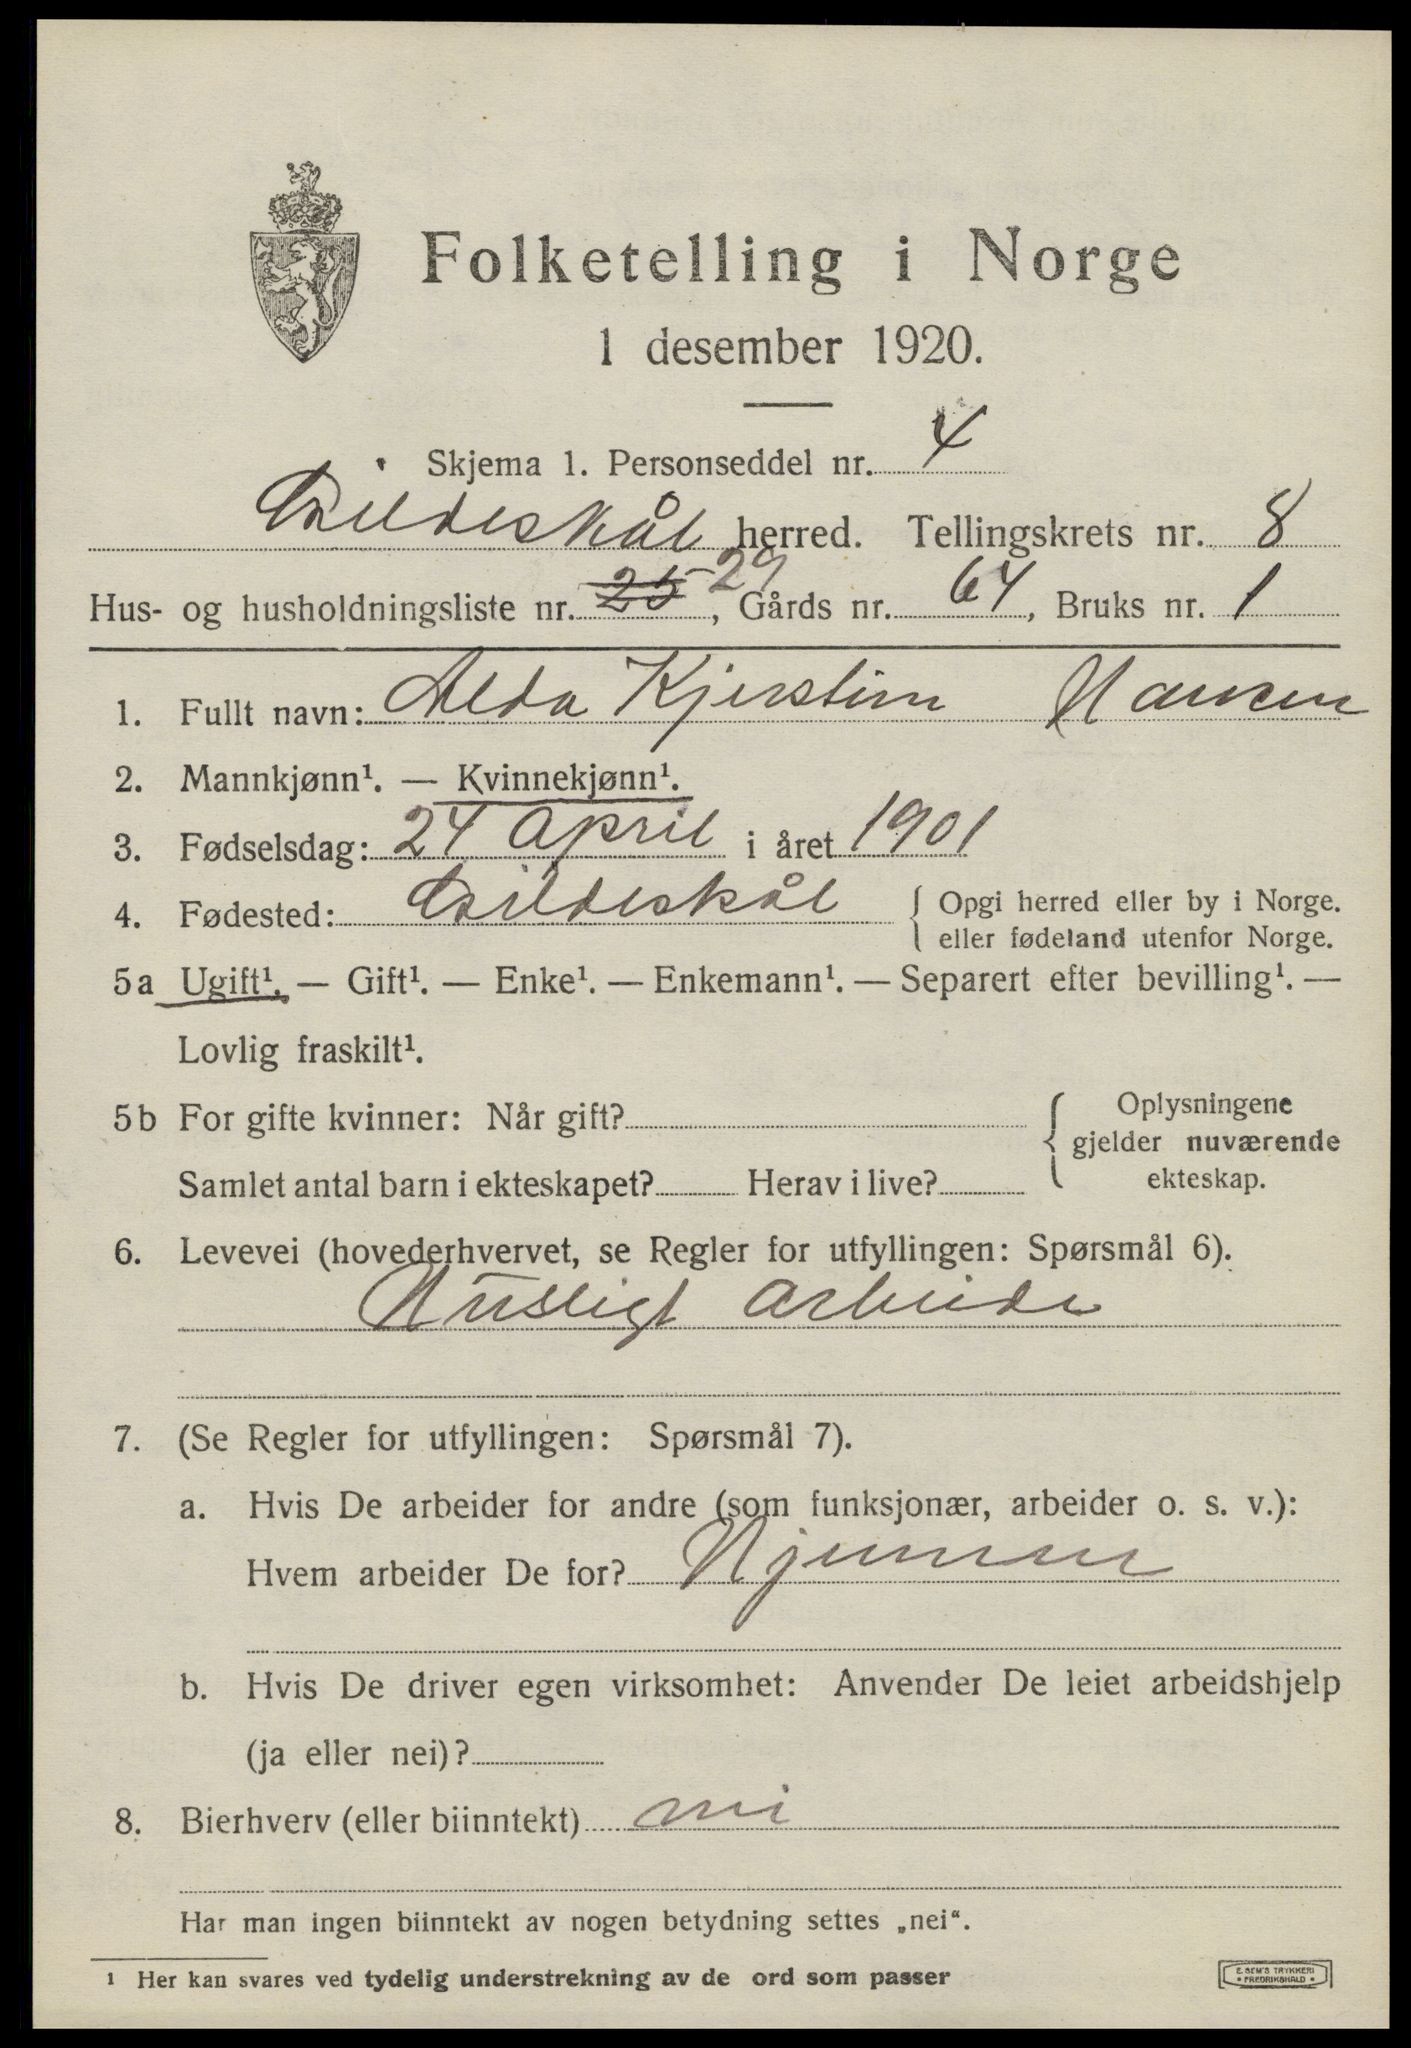 Folketelling i Norge
1 desember 1920.
Skjema 1. Personseddel nr. 4
Gildeskål herred. Tellingskrets nr. 8
Hus- og husholdningsliste nr. 25 29, Gårds nr. 64, Bruks nr. 1
1. Fullt navn: Alda Kjerstine Hansen
2. Mannkjønn¹. — Kvinnekjønn¹.
3. Fødselsdag: 24 April i året 1901
4. Fødested: Gildeskål { Opgi herred eller by i Norge.
eller fødeland utenfor Norge.
5a Ugift¹. — Gift¹. — Enke¹. — Enkemann¹. — Separert efter bevilling¹. —
Lovlig fraskilt¹.
5b For gifte kvinner: Når gift? { Oplysningene
gjelder nuværende
ekteskap.
Samlet antal barn i ekteskapet? Herav i live?
6. Levevei (hovederhvervet, se Regler for utfyllingen: Spørsmål 6).
Husligt arbeide
7. (Se Regler for utfyllingen: Spørsmål 7).
a. Hvis De arbeider for andre (som funksjonær, arbeider o. s. v.):
Hvem arbeider De for? Hjemme
b. Hvis De driver egen virksomhet: Anvender De leiet arbeidshjelp
(ja eller nei)?
8. Bierhverv (eller biinntekt) nei
Har man ingen biinntekt av nogen betydning settes „nei“.
1 Her kan svares ved tydelig understrekning av de ord som passer
E. SEM'S TRYKKERI
• FREDRIKSHALD •